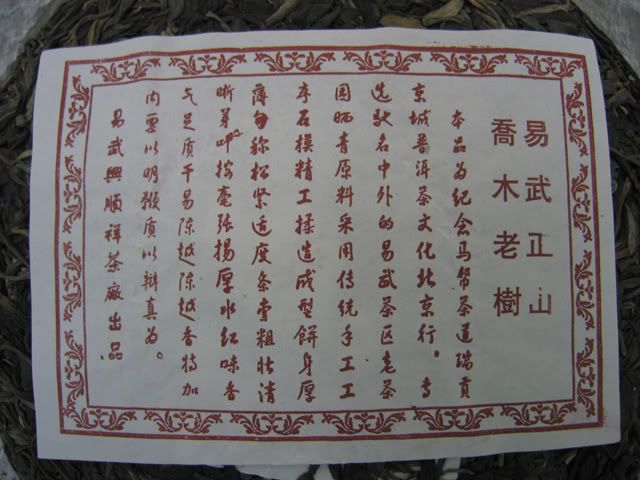 易武正山
喬木老樹
本品为纪念马帮茶道瑞贡
京城普洱茶文化北京行。专
选驰名中外的易武茶区老茶
园晒青原料采用传统手工工
序石模精工揉造成型餅身厚
薄匀称松紧适度条索粗壮清
晰芽叶按毫张扬厚水红味香
气足质干易陈越陈越香特加
内票以明质以辩真为。
易武興順祥茶廠出品